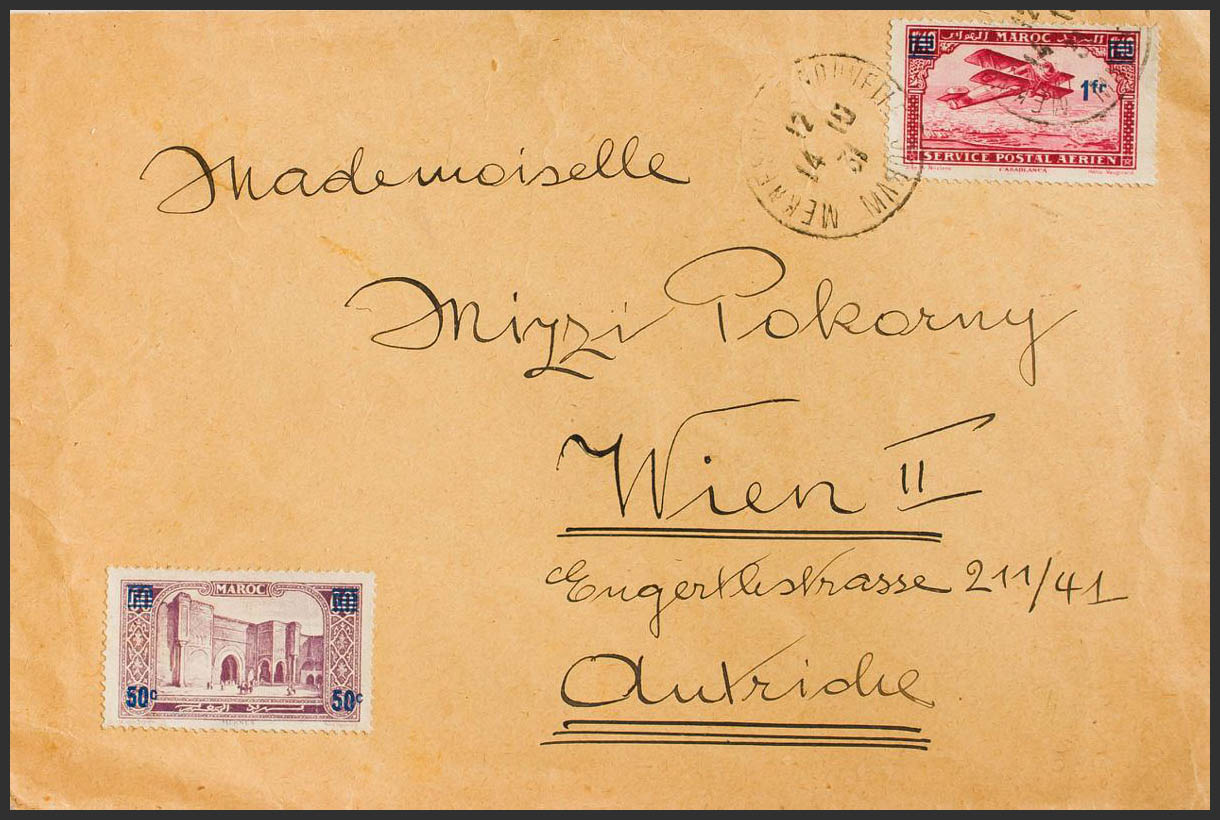 MAROC
1fr
SERVICE POSTAL AÉRIEN
CASABLANCA
12 10
14 31
MEKNES
Mademoiselle
Mizzi Pokorny
Wien II
Engerthstrasse 211/41
Autriche
MAROC
50c 50c
MEKNÈS